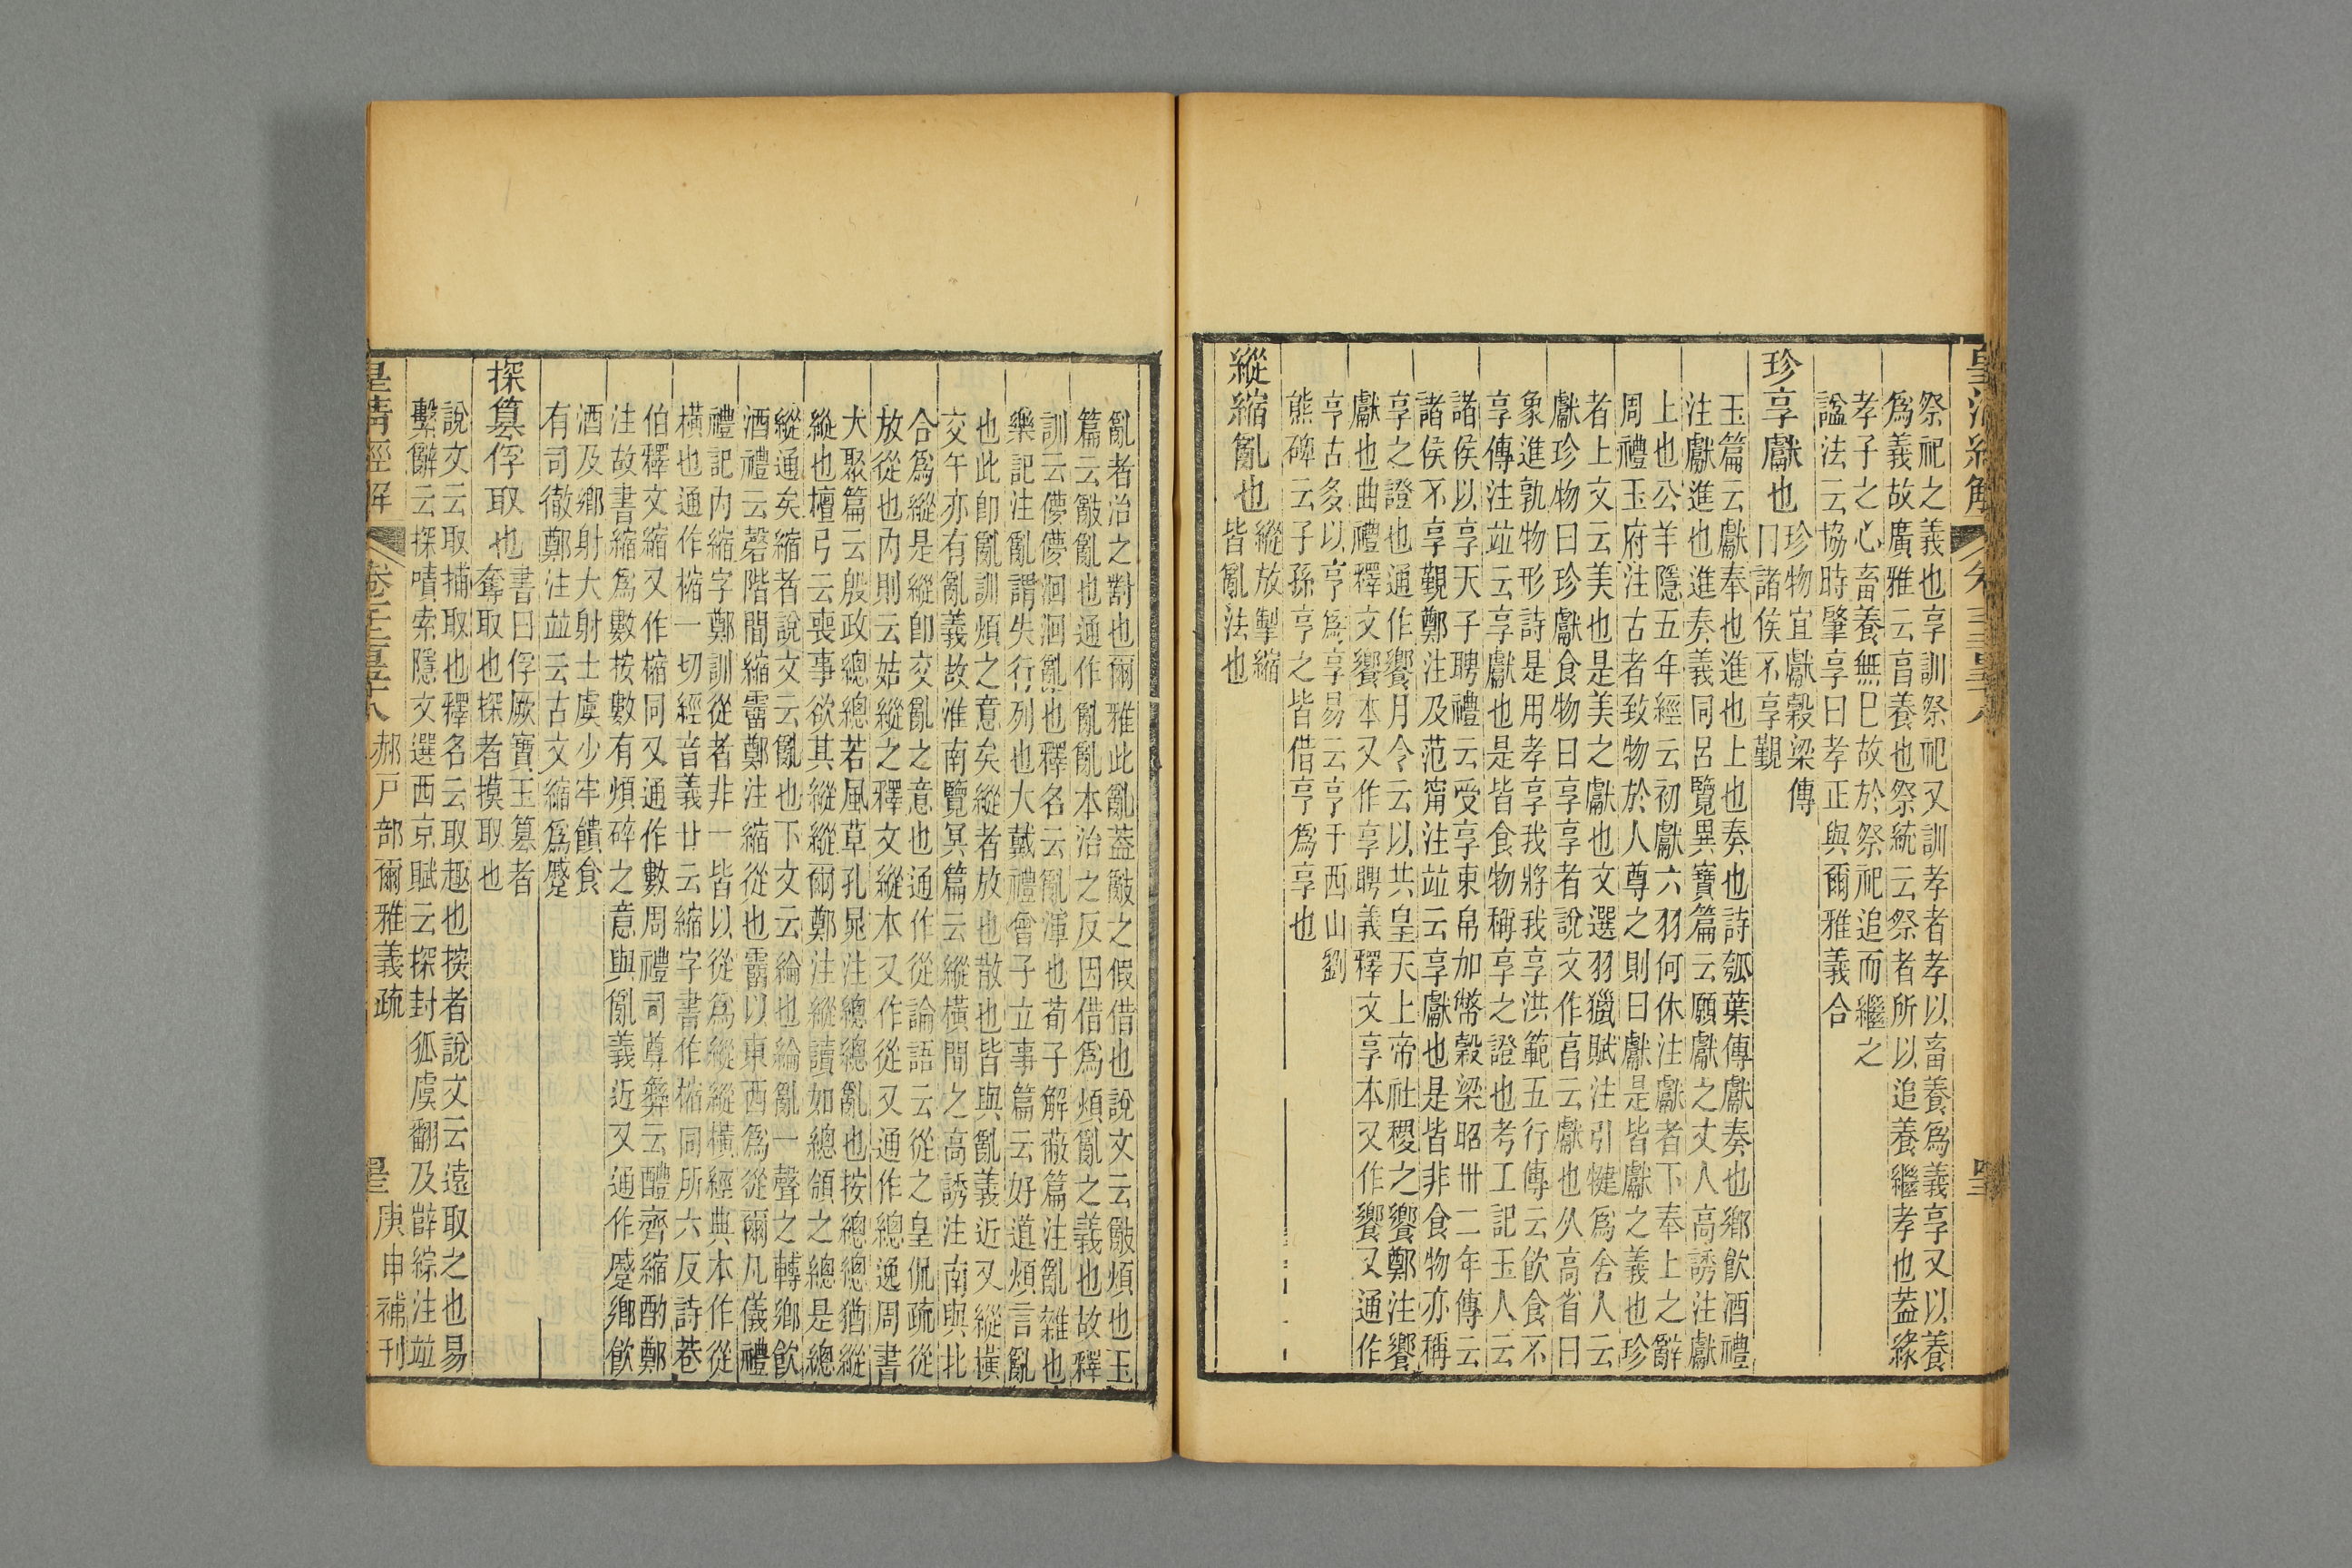 祭祀之義也享訓祭祀又訓孝者孝以畜養爲義享又以養
爲義故廣雅云亯養也祭統云祭者所以追養繼孝也葢緣
孝子之心畜養無已故於祭祀追而繼之
諡法云協時肇享曰孝正與爾雅義合
珍享獻也
珍物宜獻穀梁傳
曰諸侯不享覲
玉篇云獻奉也進也上也奏也詩瓠葉傳獻奏也鄉飲酒禮
注獻進也進奏義同呂覽異寶篇云願獻之丈人高誘注獻
上也公羊隱五年經云初獻六羽何休注獻者下奉上之辭
周禮玉府注古者致物於人尊之則曰獻是皆獻之義也珍
者上文云美也是美之獻也文選羽獵賦注引犍爲舍人云
獻珍物曰珍獻食物曰享享者說文作亯云獻也从高省曰
象進孰物形詩是用孝享我將我享洪範五行傳云飲食不
享傳注竝云享獻也是皆食物稱享之證也考工記玉人云
諸侯以享天子聘禮云受享束帛加幣穀梁昭卅二年傳云
諸侯不享覲鄭注及范甯注竝云享獻也是皆非食物亦稱
享之證也通作饗月令云以共皇天上帝社稷之饗鄭注饗
獻也曲禮釋文饗本又作享聘義釋文享本又作饗又通作
亨古多以亨爲享易云亨于西山劉
熊碑云子孫亨之皆借亨爲享也
縱縮亂也
縱放掣縮
皆亂法也
亂者治之對也爾雅此亂葢敽之假借也說文云敽煩也玉
篇云敽亂也通作亂亂本治之反因借爲煩亂之義也故釋
訓云儚儚洄洄亂也釋名云亂渾也荀子解蔽篇注亂雜也
樂記注亂謂失行列也大戴禮曾子立事篇云好道煩言亂
也此卽亂訓煩之意矣縱者放也散也皆與亂義近又縱橫
交午亦有亂義故淮南覽冥篇云縱橫間之高誘注南與北
合爲縱是縱卽交亂之意也通作從論語云從之皇侃疏從
放從也內則云姑縱之釋文縱本又作從又通作總逸周書
大聚篇云殷政總總若風草孔晁注總總亂也按總總猶縱
縱也檀弓云喪事欲其縱縱爾鄭注縱讀如總領之總是總
縱通矣縮者說文云亂也下文云綸也綸亂一聲之轉鄉飲
酒禮云磬階間縮霤鄭注縮從也霤以東西爲從爾凡儀禮
禮記內縮字鄭訓從者非一皆以從爲縱縱橫經典本作從
橫也通作樎一切經音義廿云縮字書作樎同所六反詩巷
伯釋文縮又作樎同又通作數周禮司尊彝云醴齊縮酌鄭
注故書縮爲數按數有煩碎之意與亂義近又通作蹙鄉飲
酒及鄉射大射士虞少牢饋食
有司徹鄭注竝云古文縮爲蹙
探篡俘取也
書曰俘厥寶玉篡者
奪取也探者摸取也
說文云取捕取也釋名云取趣也按者說文云遠取之也易
繫辭云探嘖索隱文選西京賦云探封狐虞翻及薛綜注竝
皇清經解
郝戶部爾雅義疏
庚申補刊